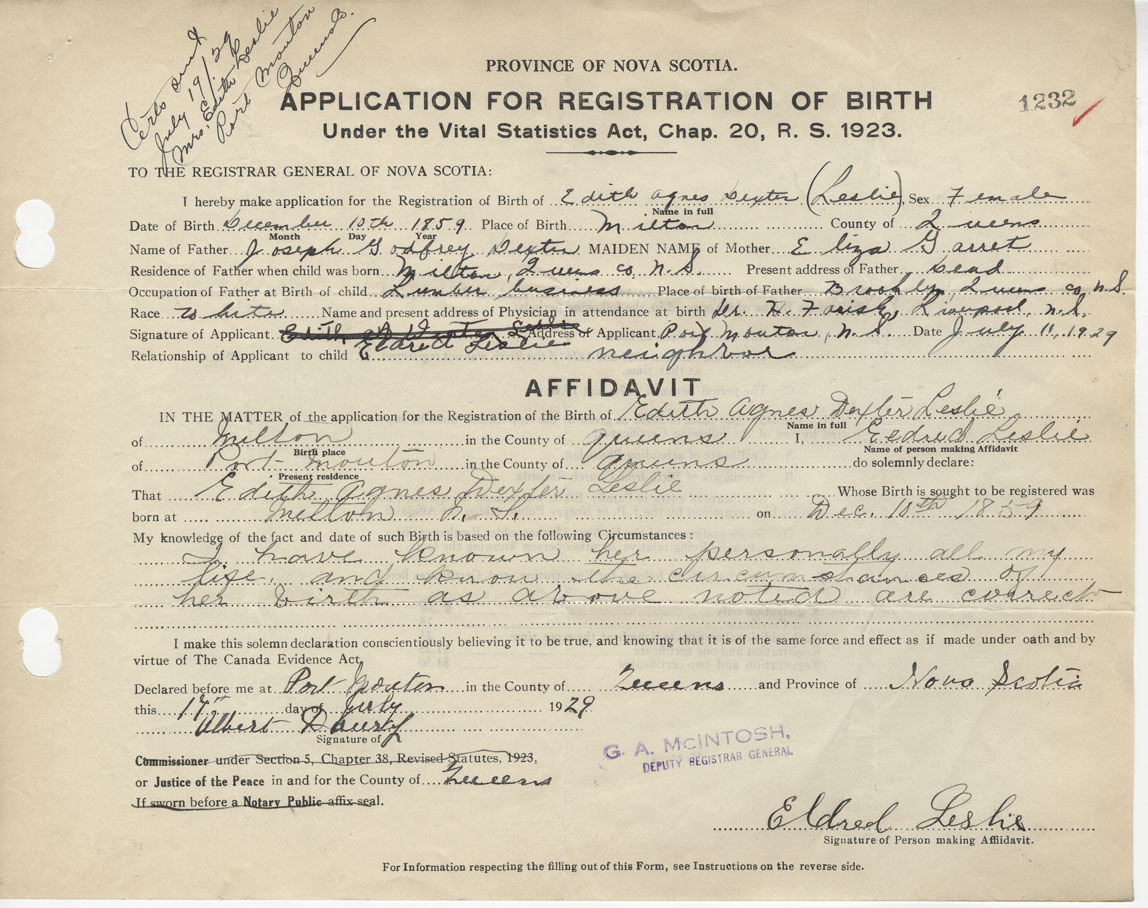 Certs sent
July 19/29
Mrs. Edith Leslie
Port Mouton
Queens Co.
PROVINCE OF NOVA SCOTIA.
APPLICATION FOR REGISTRATION OF BIRTH
1232
Under the Vital Statistics Act, Chap. 20, R. S. 1923.
TO THE REGISTRAR GENERAL OF NOVA SCOTIA:
I hereby make application for the Registration of Birth of Edith Agnes Dexter (Leslie) Sex Female
Name in full
Date of Birth December 10th 1859 Place of Birth Milton County of Queens
Month Day Year
Name of Father Joseph Godfrey Dexter MAIDEN NAME of Mother Eliza Garret
Residence of Father when child was born Milton, Queens co, N.S. Present address of Father, Dead
Occupation of Father at Birth of child Lumber business Place of birth of Father Brooklyn, Queens co, N.S.
Race White Name and present address of Physician in attendance at birth Dr. H. Liverpool, N.S.
Signature of Applicant Edith A Dexter Leslie Address of Applicant Port Mouton, N.S. Date July 11, 1929
Eldred Leslie
Relationship of Applicant to child neighbor
AFFIDAVIT
IN THE MATTER of the application for the Registration of the Birth of Edith Agnes Dexter Leslie
Name in full
of Milton in the County of Queens I, Eldred Leslie
Birth place Name of person making Affidavit
of Port Mouton in the County of Queens do solemnly declare:
Present residence
That Edith Agnes Dexter Leslie Whose Birth is sought to be registered was
born at Milton N. S. on Dec. 10th 1859
My knowledge of the fact and date of such Birth is based on the following Circumstances:
I have known her personally all my
life, and know the circumstances of
her birth as above noted are correct
I make this solemn declaration conscientiously believing it to be true, and knowing that it is of the same force and effect as if made under oath and by
virtue of The Canada Evidence Act.
Declared before me at Port Mouton in the County of Queens and Province of Nova Scotia
this 17th day of July 1929
Albert
Signature of
Commissioner under Section 5, Chapter 38, Revised Statutes, 1923,
or Justice of the Peace in and for the County of Queens
If sworn before a Notary Public affix seal.
G. A. McINTOSH,
DEPUTY REGISTRAR GENERAL
Eldred Leslie
Signature of Person making Affiidavit.
For Information respecting the filling out of this Form, see Instructions on the reverse side.